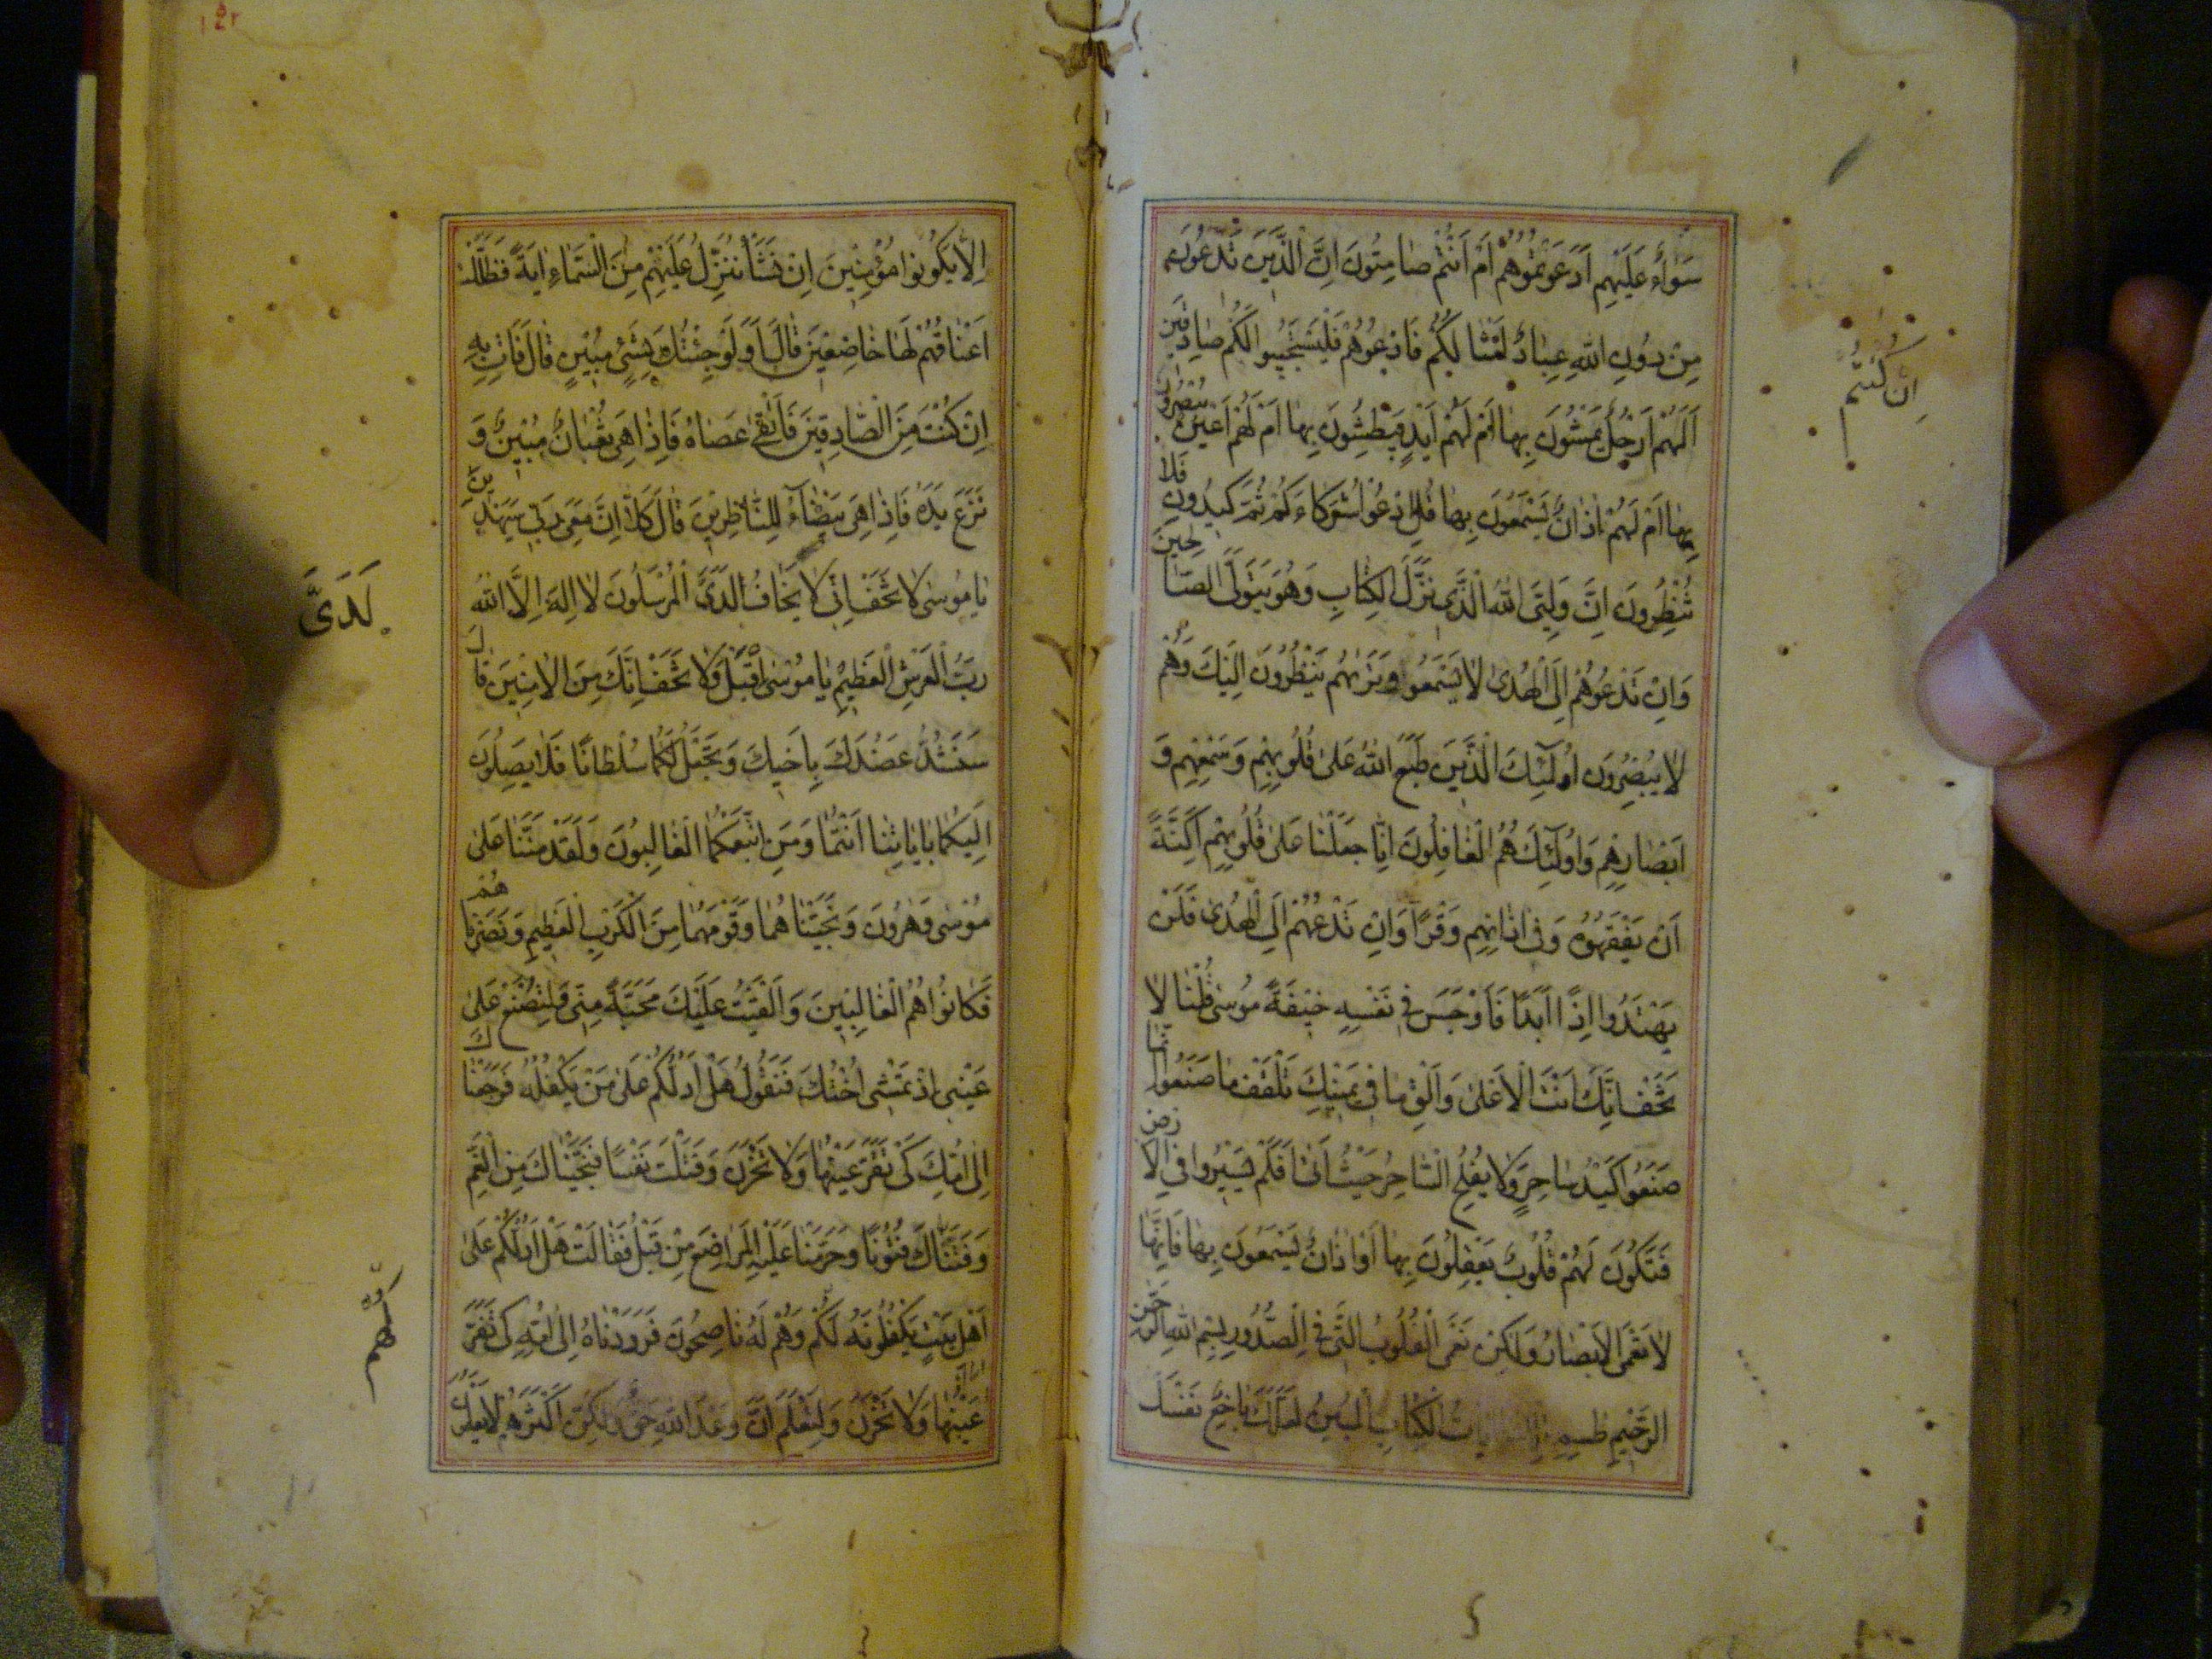 سَوَاءٌ عَلَيْهِمْ اَدَعَوْتُمُوهُمْ اَمْ اَنْتُمْ صَامِتُونَ اِنَّ الَّذِينَ تَدْعُونَ
مِنْ دُونِ اللّٰهِ عِبَادٌ اَمْثَالُكُمْ فَادْعُوهُمْ فَلْيَسْتَجِيبُوا لَكُمْ صَادِقِينَ
اِنْ كُنْتُمْ
اَلَهُمْ اَرْجُلٌ يَمْشُونَ بِهَا اَمْ لَهُمْ اَيْدٍ يَبْطِشُونَ بِهَا اَمْ لَهُمْ اَعْيُنٌ يُبْصِرُونَ
بِهَا اَمْ لَهُمْ اٰذَانٌ يَسْمَعُونَ بِهَا قُلِ ادْعُوا شُرَكَاءَكُمْ ثُمَّ كِيدُونِ فَلَا
تُنْظِرُونَ اِنَّ وَلِيِّىَ اللّٰهُ الَّذِى نَزَّلَ الْكِتَابَ وَهُوَ يَتَوَلَّى الصَّالِحِينَ
وَاِنْ تَدْعُوهُمْ اِلَى الْهُدٰى لَا يَسْمَعُوا وَتَرٰيهُمْ يَنْظُرُونَ اِلَيْكَ وَهُمْ
لَا يُبْصِرُونَ اُولٰئِكَ الَّذِينَ طَبَعَ اللّٰهُ عَلٰى قُلُوبِهِمْ وَسَمْعِهِمْ وَ
اَبْصَارِهِمْ وَاُولٰئِكَ هُمُ الْغَافِلُونَ اِنَّا جَعَلْنَا عَلٰى قُلُوبِهِمْ اَكِنَّةً
اَنْ يَفْقَهُوهُ وَفِى اٰذَانِهِمْ وَقْرًا وَاِنْ تَدْعُهُمْ اِلَى الْهُدٰى فَلَنْ
يَهْتَدُوا اِذًا اَبَدًا فَاَوْجَسَ فِى نَفْسِهِ خِيفَةً مُوسٰى قُلْنَا لَا
تَخَفْ اِنَّكَ اَنْتَ الْاَعْلٰى وَاَلْقِ مَا فِى يَمِينِكَ تَلْقَفْ مَا صَنَعُوا اِنَّمَا
صَنَعُوا كَيْدُ سَاحِرٍ وَلَا يُفْلِحُ السَّاحِرُ حَيْثُ اَتٰى اَفَلَمْ يَسِيرُوا فِى الْاَرْضِ
فَتَكُونَ لَهُمْ قُلُوبٌ يَعْقِلُونَ بِهَا اَوْ اٰذَانٌ يَسْمَعُونَ بِهَا فَاِنَّهَا
لَا تَعْمَى الْاَبْصَارُ وَلٰكِنْ تَعْمَى الْقُلُوبُ الَّتِى فِى الصُّدُورِ بِسْمِ اللّٰهِ الرَّحْمٰنِ
الرَّحِيمِ طٰسم اٰيَاتُ الْكِتَابِ الْمُبِينِ لَعَلَّكَ بَاخِعٌ نَفْسَكَ
١٤٢
اَلَّا يَكُونُوا مُؤْمِنِينَ اِنْ نَشَأْ نُنَزِّلْ عَلَيْهِمْ مِنَ السَّمَاءِ اٰيَةً فَظَلَّتْ
اَعْنَاقُهُمْ لَهَا خَاضِعِينَ قَالَ اَوَلَوْ جِئْتُكَ بِشَىْءٍ مُبِينٍ قَالَ فَاْتِ بِهِ
اِنْ كُنْتَ مِنَ الصَّادِقِينَ فَاَلْقٰى عَصَاهُ فَاِذَا هِىَ ثُعْبَانٌ مُبِينٌ وَ
نَزَعَ يَدَهُ فَاِذَا هِىَ بَيْضَاءُ لِلنَّاظِرِينَ قَالَ كَلَّا اِنَّ مَعِىَ رَبِّى سَيَهْدِينِ
يَا مُوسٰى لَا تَخَفْ اِنِّى لَا يَخَافُ لَدَىَّ الْمُرْسَلُونَ لَا اِلٰهَ اِلَّا اللّٰهُ
لَدَىَّ
رَبُّ الْعَرْشِ الْعَظِيمِ يَا مُوسٰى اَقْبِلْ وَلَا تَخَفْ اِنَّكَ مِنَ الْاٰمِنِينَ قَالَ
سَنَشُدُّ عَضُدَكَ بِاَخِيكَ وَنَجْعَلُ لَكُمَا سُلْطَانًا فَلَا يَصِلُونَ
اِلَيْكُمَا بِاٰيَاتِنَا اَنْتُمَا وَمَنِ اتَّبَعَكُمَا الْغَالِبُونَ وَلَقَدْ مَنَنَّا عَلٰى
مُوسٰى وَهٰرُونَ وَنَجَّيْنَاهُمَا وَقَوْمَهُمَا مِنَ الْكَرْبِ الْعَظِيمِ وَنَصَرْنَاهُمْ
فَكَانُوا هُمُ الْغَالِبِينَ وَاَلْقَيْتُ عَلَيْكَ مَحَبَّةً مِنِّى وَلِتُصْنَعَ عَلٰى
عَيْنِى اِذْ تَمْشِى اُخْتُكَ فَتَقُولُ هَلْ اَدُلُّكُمْ عَلٰى مَنْ يَكْفُلُهُ فَرَجَعْنَاكَ
اِلٰى اُمِّكَ كَىْ تَقَرَّ عَيْنُهَا وَلَا تَحْزَنَ وَقَتَلْتَ نَفْسًا فَنَجَّيْنَاكَ مِنَ الْغَمِّ
وَفَتَنَّاكَ فُتُونًا وَحَرَّمْنَا عَلَيْهِ الْمَرَاضِعَ مِنْ قَبْلُ فَقَالَتْ هَلْ اَدُلُّكُمْ عَلٰى
اَهْلِ بَيْتٍ يَكْفُلُونَهُ لَكُمْ وَهُمْ لَهُ نَاصِحُونَ فَرَدَدْنَاهُ اِلٰى اُمِّهِ كَىْ تَقَرَّ
عَيْنُهَا وَلَا تَحْزَنَ وَلِتَعْلَمَ اَنَّ وَعْدَ اللّٰهِ حَقٌّ وَلٰكِنَّ اَكْثَرَهُمْ لَا يَعْلَمُونَ